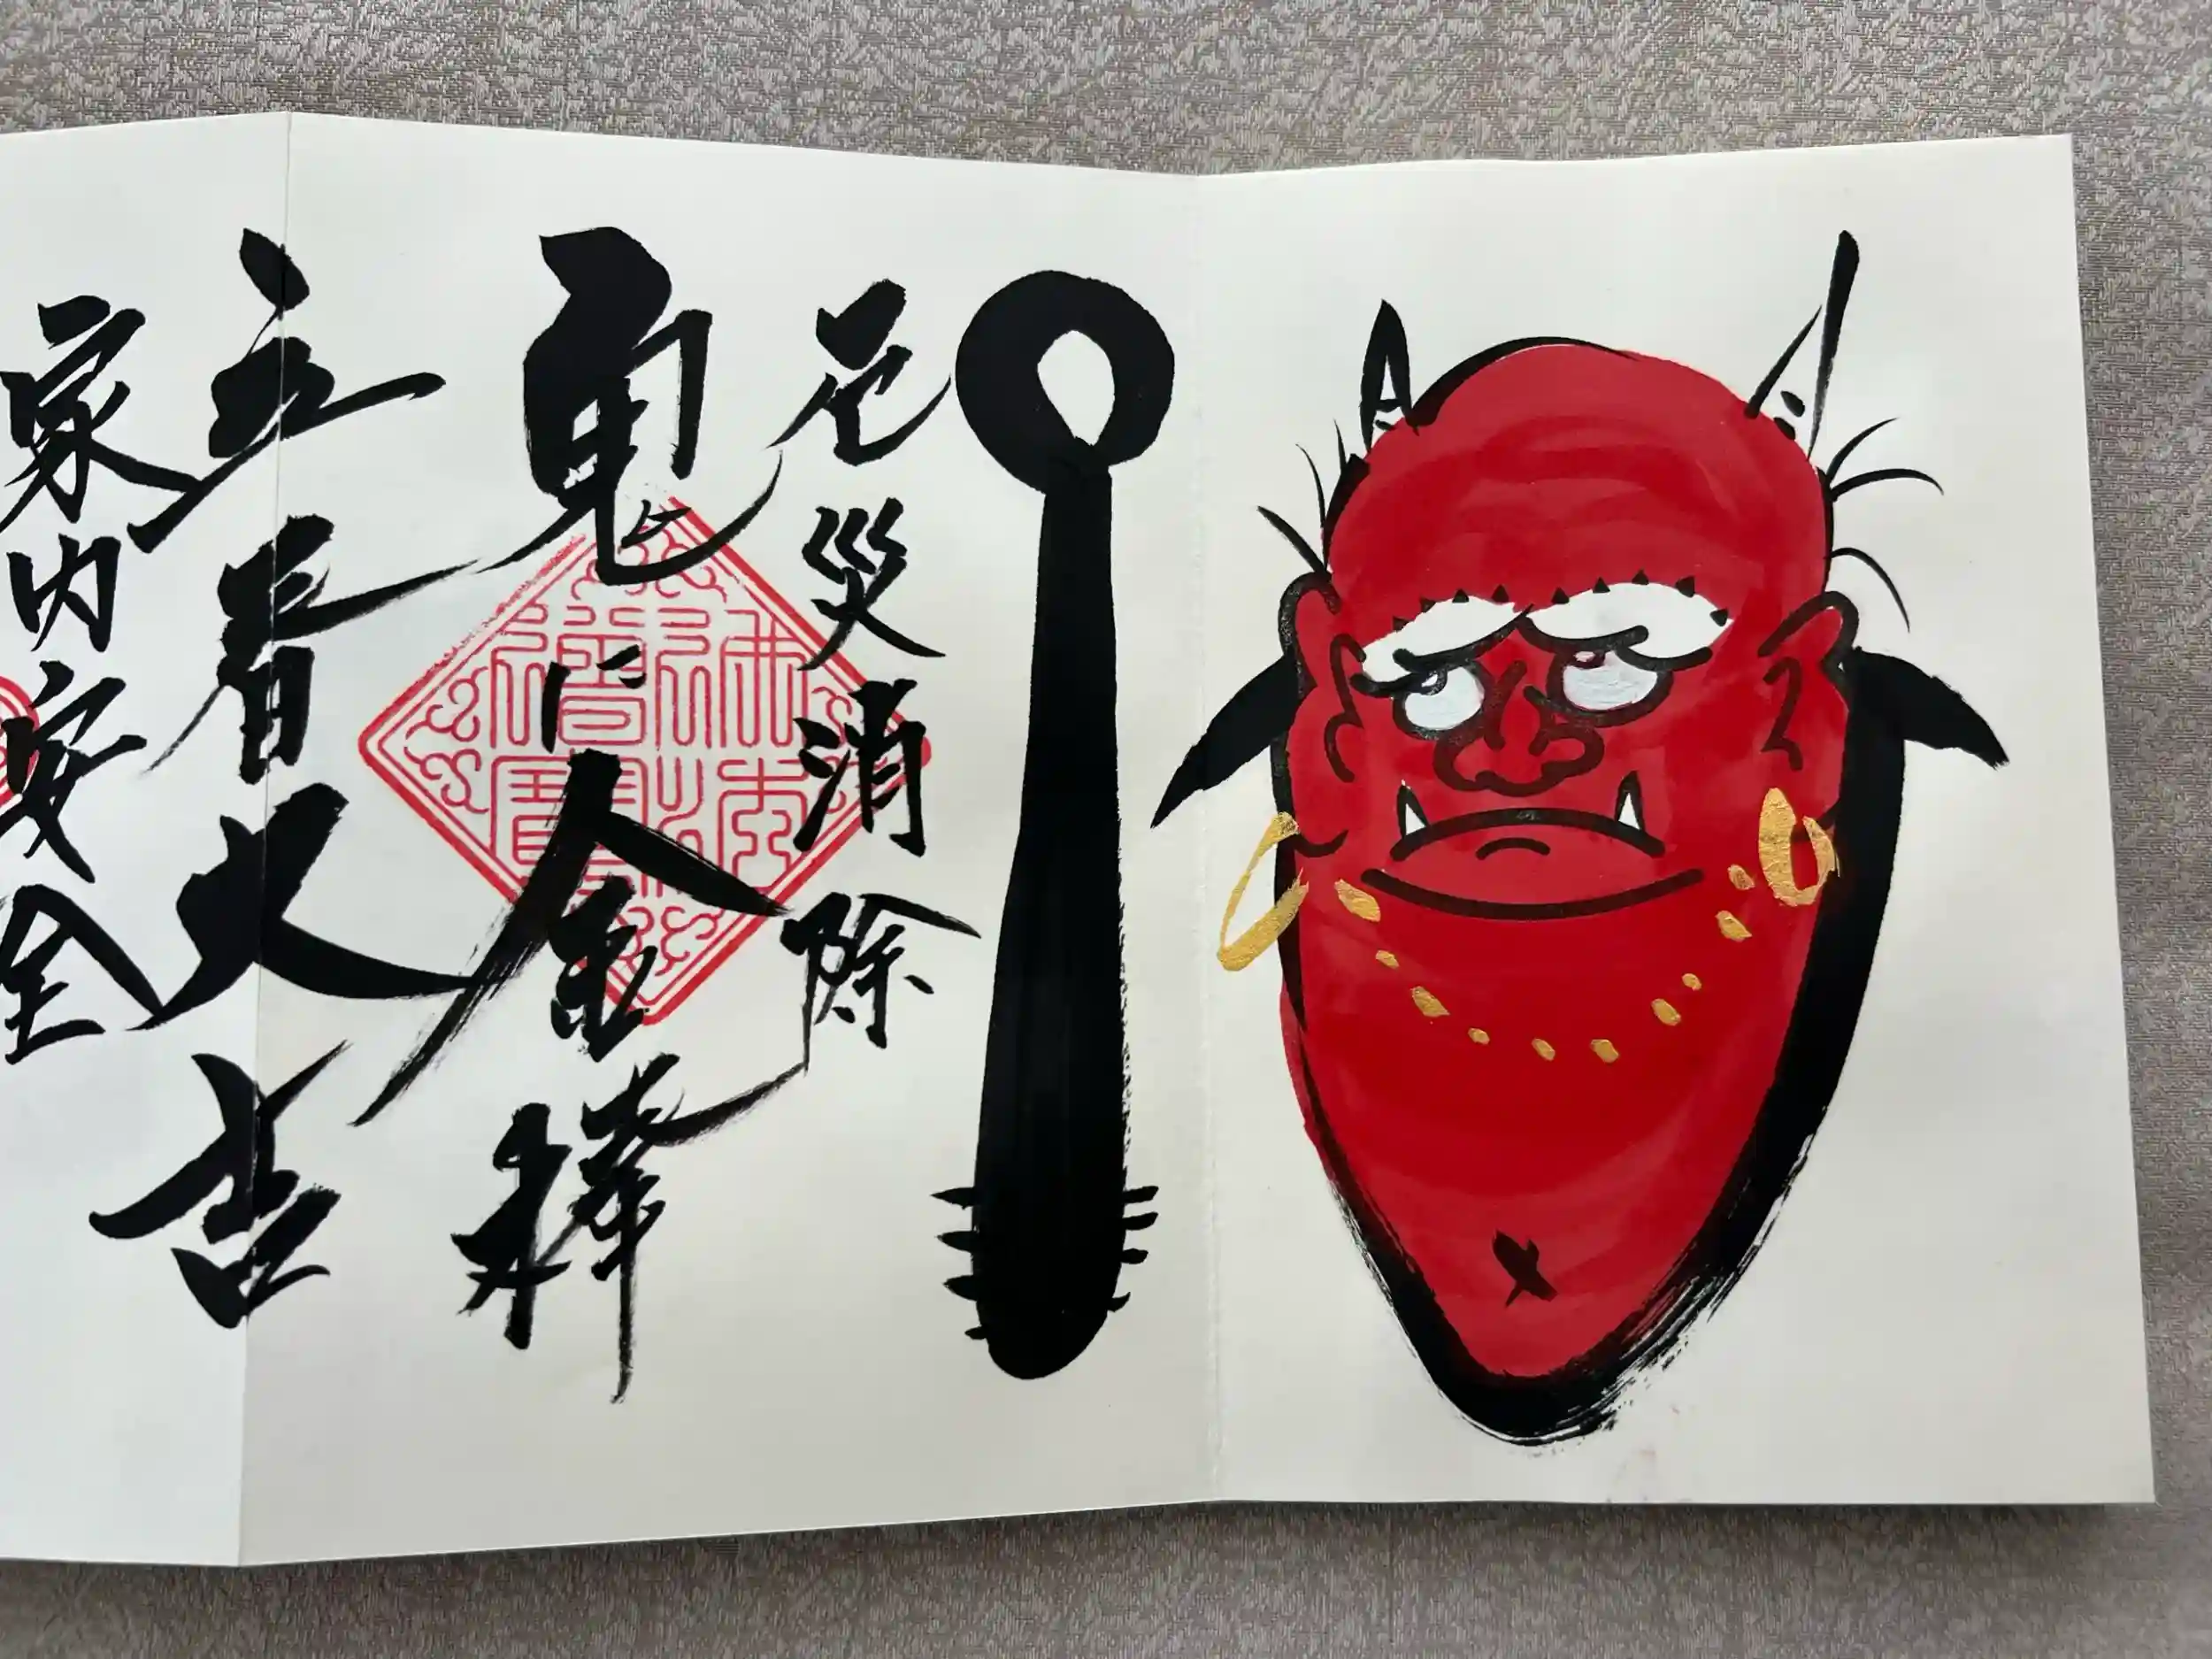 厄災消除
鬼に金棒
佛法僧寶
立春大吉
家内安全